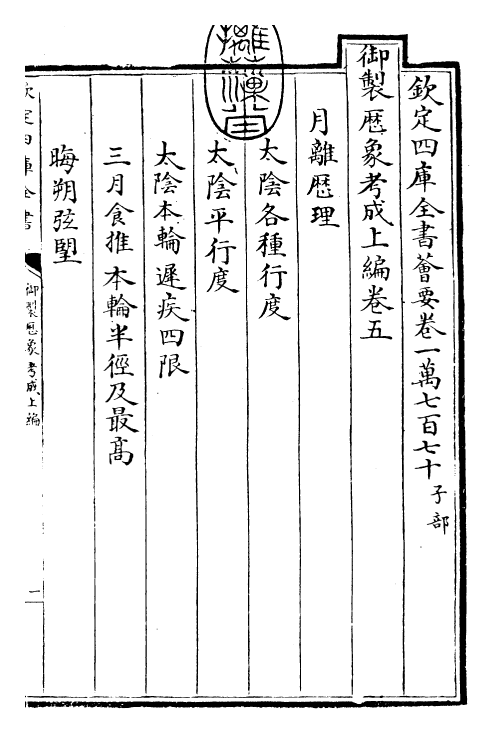 欽定四庫全書薈要卷一萬七百七十 子部
御製厯象考成上編卷五
月離厯理
太陰各種行度
太陰平行度
太陰本輪遲疾四限
三月食推本輪半徑及最高
晦朔弦朢
欽定四庫全書
御製厯象考成上編
一